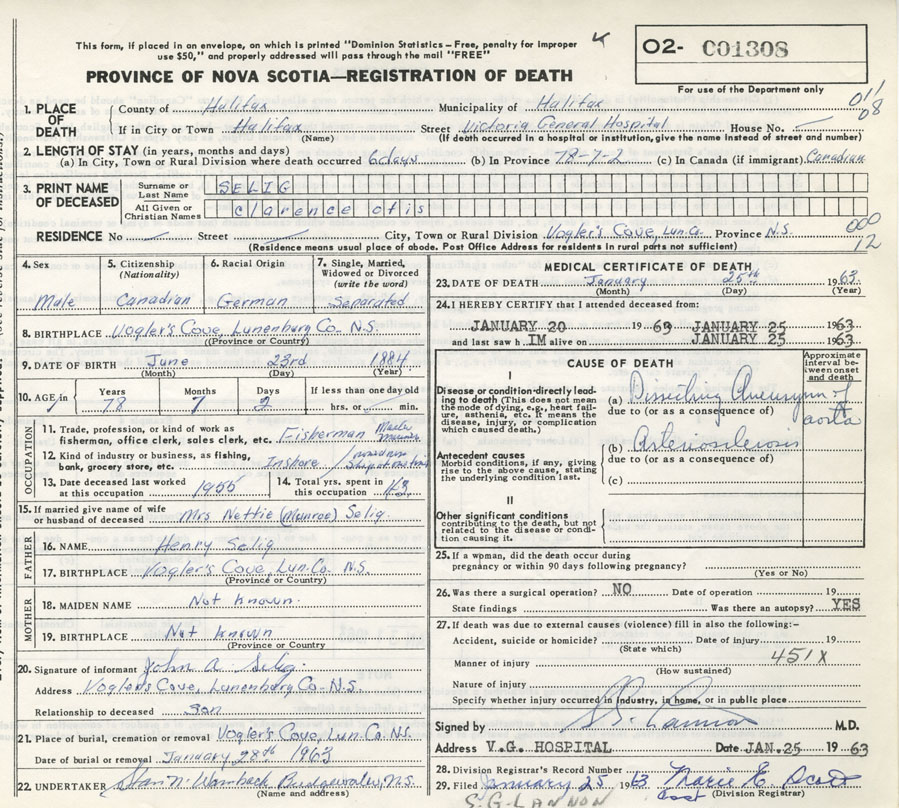 This form, if placed in an envelope, on which is printed "Dominion Statistics – Free, penalty for improper
use $50," and properly addressed will pass through the mail "FREE"
PROVINCE OF NOVA SCOTIA—REGISTRATION OF DEATH
O2- C01308
For use of the Department only
011
08
1. PLACE OF DEATH
County of Halifax Municipality of Halifax
If in City or Town Halifax Street Victoria General Hospital House No.
(Name) (If death occurred in a hospital or institution, give the name instead of street and number)
2. LENGTH OF STAY (in years, months and days)
(a) In City, Town or Rural Division where death occurred 6 days (b) In Province 78-7-2 (c) In Canada (if immigrant) Canadian
3. PRINT NAME OF DECEASED
Surname or Last Name SELIG
All Given or Christian Names clarence otis
RESIDENCE No Street City, Town or Rural Division Vogler's Cove, Lun. Co. Province N.S.
(Residence means usual place of abode. Post Office Address for residents in rural parts not sufficient)
000
12
4. Sex
Male
5. Citizenship (Nationality)
Canadian
6. Racial Origin
German
7. Single, Married, Widowed or Divorced (write the word)
Separated
8. BIRTHPLACE Vogler's Cove Lunenburg Co. N.S.
(Province or Country)
9. DATE OF BIRTH June 23rd 1884
(Month) (Day) (Year)
10. AGE Years Months Days If less than one day old
78 7 2 hrs. or min.
OCCUPATION
11. Trade, profession, or kind of work as
fisherman, office clerk, sales clerk, etc. Fisherman Master
12. Kind of industry or business, as fishing,
bank, grocery store, etc. Inshore
13. Date deceased last worked
at this occupation 1955
14. Total yrs. spent in
this occupation
15. If married give name of wife
or husband of deceased Mrs Nettie (Munroe) Selig.
FATHER
16. NAME Henry Selig
17. BIRTHPLACE Vogler's Cove, Lun. Co. N.S.
(Province or Country)
MOTHER
18. MAIDEN NAME Not known.
19. BIRTHPLACE Not known
(Province or Country)
20. Signature of informant John A Selig
Address Vogler's Cove, Lunenburg Co. N.S.
Relationship to deceased son
21. Place of burial, cremation or removal Vogler's Cove, Lun. Co. N.S.
Date of burial or removal January 28th 1963
22. UNDERTAKER Wambach Bridgewater, N.S.
(Name and address)
MEDICAL CERTIFICATE OF DEATH
23. DATE OF DEATH January 25th 1963
(Month) (Day) (Year)
24. I HEREBY CERTIFY that I attended deceased from:
JANUARY 20 1963 JANUARY 25 1963
and last saw h IM alive on JANUARY 25 1963
CAUSE OF DEATH
Approximate interval between onset and death
I
Disease or condition directly leading to death (This does not mean the mode of dying, e.g., heart failure, asthenia, etc. It means the disease, injury, or complication which caused death.)
(a) Dissecting Aneurysm of aorta
due to (or as a consequence of)
Antecedent causes
Morbid conditions, if any, giving rise to the above cause, stating the underlying condition last.
(b) Arteriosclerosis
due to (or as a consequence of)
(c)
II
Other significant conditions
contributing to the death, but not related to the disease or condition causing it.
25. If a woman, did the death occur during
pregnancy or within 90 days following pregnancy?
(Yes or No)
26. Was there a surgical operation? NO Date of operation 19
State findings Was there an autopsy? YES
27. If death was due to external causes (violence) fill in also the following:-
Accident, suicide or homicide? Date of injury 19
(State which)
451X
Manner of injury
(How sustained)
Nature of injury
Specify whether injury occurred in industry, in home, or in public place
Signed by S G Lannon M.D.
Address V.G. HOSPITAL Date JAN. 25 1963
28. Division Registrar's Record Number
29. Filed January 25 1963 Marie E. Scott
(Division Registrar)
S. G. LANNON